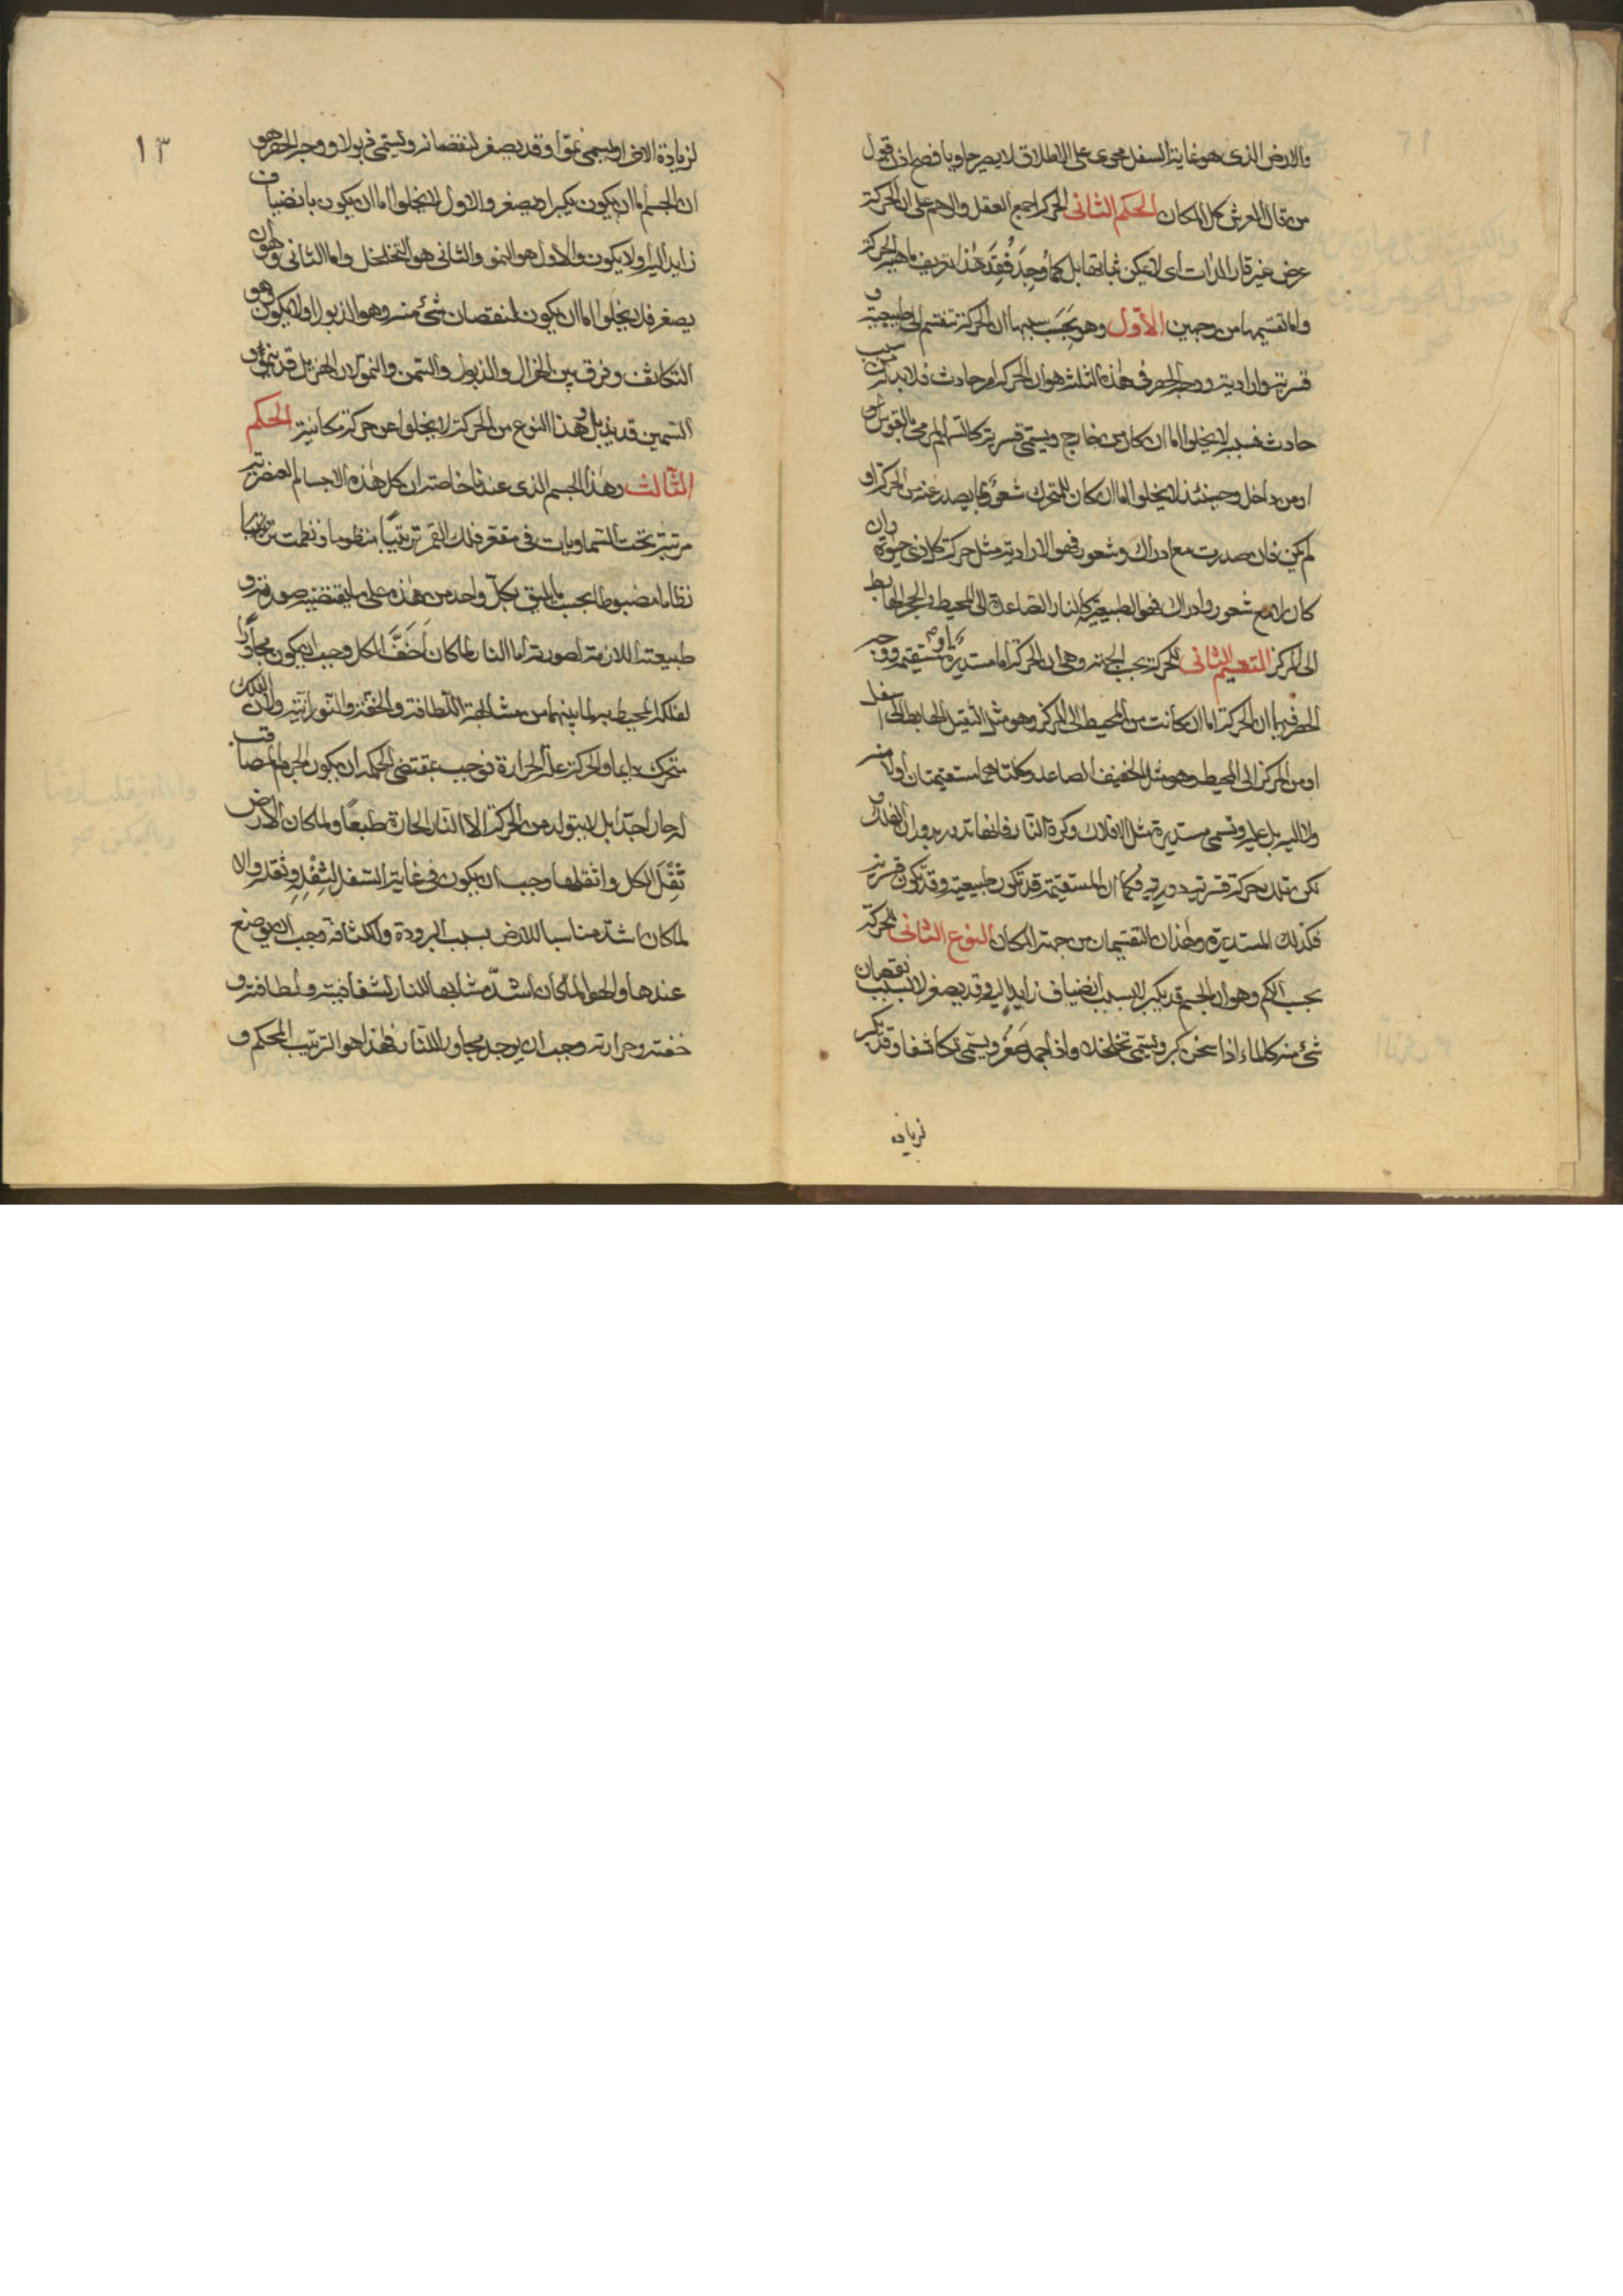 والارض الذى هو غاية السفل محوى على الاطلاق لا يصير حاويا فصح اذن قول
من قال العرش كل المكان الحكم الثانى الحركة اجمع العقل والوهم على ان الحركة
عرض غير قار الذات اى لا يمكن ثباتها بل كما وجد فقد هذا تعريف ماهية الحركة
واما تقسيمها من وجهين الأول وهو بحسب سببها ان الحركة تنقسم الى طبيعية و
قسرية وارادية ووجه الحصر فى هذه الثلث هو ان الحركة امر حادث فلا بد له من سبب
حادث فسببه لا يخلوا اما ان كان من خارج ويسمى قسرية كالسهم المرمى عن القوس او
او من داخل وحينئذ لا يخلوا اما ان كان للمتحرك شعور بما يصدر عنه من الحركة او
لم يكن فان صدرت مع ادراك وشعور فهو الارادية مثل حركة كل ذى حيوة وان
كان مع شعور وادراك فهو الطبيعية كالنار الصاعدة الى المحيط والحجر الهابط
الى المركز التقسيم الثانى للحركة بحسب الجهة وهى ان الحركة اما مستديرة او مستقيمة ووجه
الحصر فيهما ان الحركة اما ان كانت من المحيط الى المركز وهو مثل الثقيل الهابط الى اسفل
او من المركز الى المحيط وهو مثل الخفيف الصاعد وكلتاهما مستقيمتان او لا منه
ولا اليه بل عليه وتسمى مستديرة مثل الافلاك وكرة النار فانها تدور بدوران الفلك و
لكن تلك حركة قسرية دورية فكما ان المستقيمة قد تكون طبيعية وقد تكون قسرية
فكذلك المستديرة وهذان التقسيمان من جهة المكان النوع الثانى للحركة
بحسب الكم وهو ان الجسم قد يكبر لا بسبب انضياف زايد اليه وقد يصغر لا بسبب نقصان
شئ منه كالماء اذا سخن كبر ويسمى تخلخلا واذا جمد صغر ويسمى تكاثفا وقد يكبر
زيادة
١٣
لزيادة الاضا ويسمى نموّا وقد يصغر لنقصانه ويسمى ذبولا ووجه الحصر هو
ان الجسم اما ان يكون يكبر او يصغر والاول لا يخلوا اما ان يكون بانضياف
زايد اليه او لا يكون والاول هو النمو والثانى هو التخلخل واما الثانى وهو ان
يصغر فلا يخلوا اما ان يكون لنقصان شئ منه وهو الذبول او لا يكون وهو
التكاثف وفرق بين الهزال والذبول والسمن والنمو لان الهزيل قد ينمو و
السمين قد يذبل وهذا النوع من الحركة لا يخلوا عن حركة مكانية الحكم
الثالث وهذا الجسم الذى عندنا خاصته ان كل هذه الاجسام العنصرية
مرتبة تحت السماويات فى مقعر فلك القمر ترتيبا منظوما ونظمت ترتيبها
نظاما مضبوطا بحسب ما يليق بكل واحد من هذه على ما يقتضيه صورته و
طبيعته اللازمة لصورته اما النار لما كان اخف الكل وجب ان يكون مجاورا
لفلك المحيط به لما بينهما من مشابهة اللطافة والخفة والنورانية ولان الفلك
متحرك دايما والحركة علة الحرارة فوجب بمقتضى الحكمة ان يكون الجرم المصاقب
له حارا جدا بل لا يتولد من الحركة الا النار الحارة طبعا ولما كان الارض
ثقل الكل واثقلها وجب ان يكون فى غاية السفل لثفله وثقله والا
لما كان اشد مناسبا للارض بسبب البرودة والكثافة وجب ان يوضع
عندها والهوا لما كان اشد مشابها للنار لشفافيته ولطافته و
خفته وحرارته وجب ان يوجد مجاور للنار فهذا هو الترتيب المحكم و